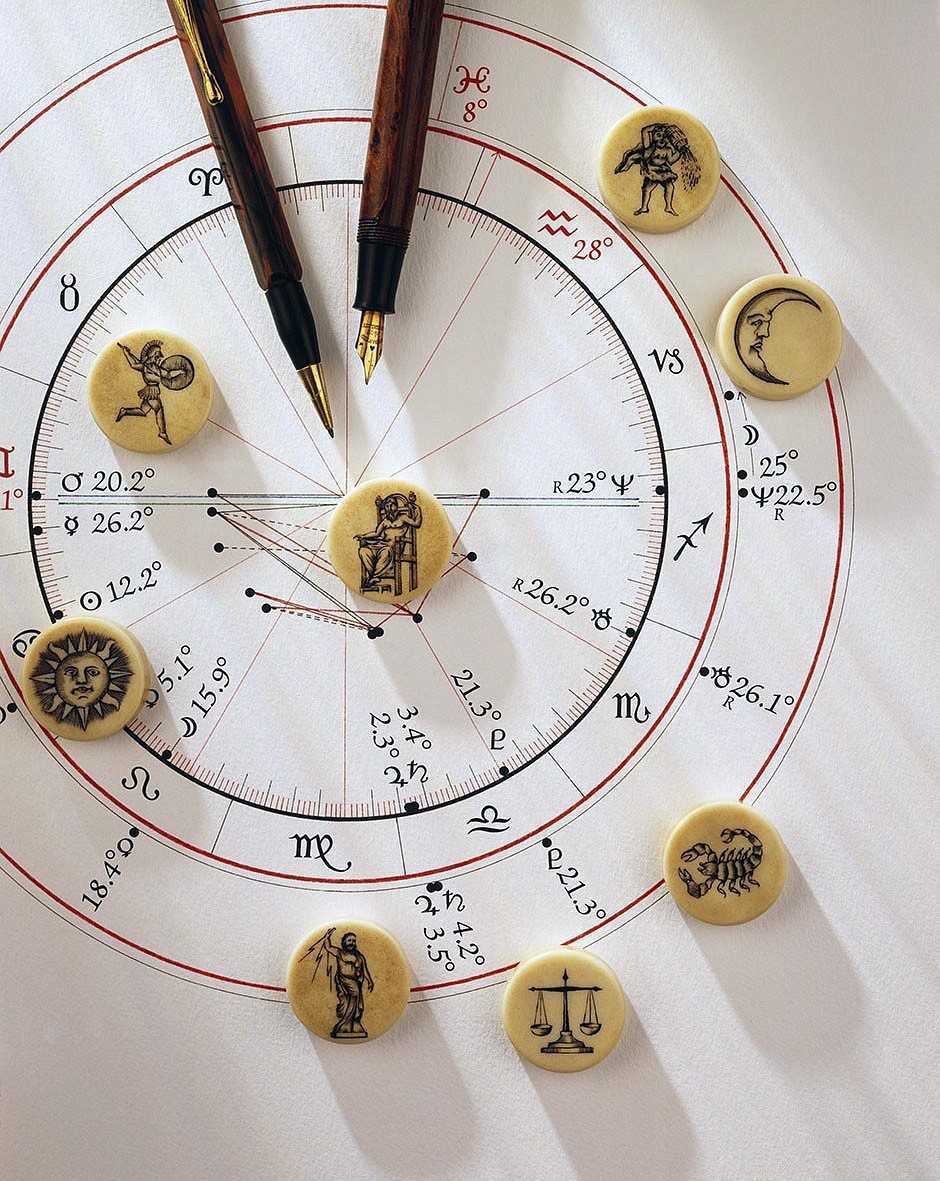 ♓
8°
♈
♒
28°
♉
♑
☽
25°
♆ 22.5°
R
1°
♂ 20.2°
R 23° ♆
☿ 26.2°
♐
☉ 12.2°
R 26.2° ♅
♅ 26.1°
R
5.1°
☽ 15.9°
♏
21.3°
♇
3.4°
2.3°
♃ ♄
♌
♍
♎
♀ 18.4°
♇ 21.3°
♃ ♄
3.5° 4.2°